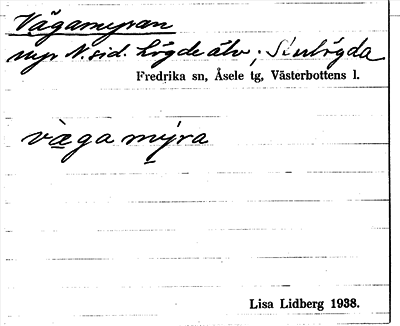 Vägamyran
myr N. sid. Lögde älv; Storlögda
Fredrika sn, Åsele tg, Västerbottens l.
vægamyra
Lisa Lidberg 1938.